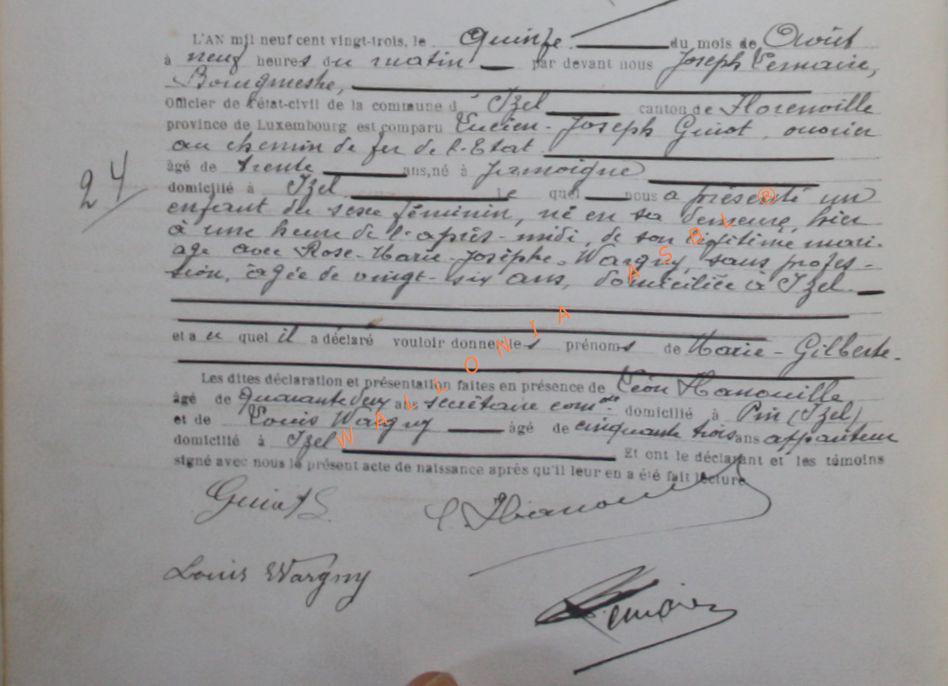 L'AN mil neuf cent vingt-trois, le Quinze du mois de Août
à neuf heures du matin par devant nous Joseph Lemaire,
Bourgmestre,
Officier de l'état-civil de la commune d' Izel canton de Florenville
province de Luxembourg est comparu Lucien-Joseph Guiot, ouvrier
au chemin de fer de l'Etat
âgé de trente ans, né à Jamoigne
24
domicilié à Izel le quel nous a présenté un
enfant du sexe féminin, né en sa demeure, hier
à une heure de l'après-midi, de son légitime mari-
age avec Rose-Marie-Josèphe Wargny, sans profes-
sion, agée de vingt-six ans, domiciliée à Izel.
et au quel il a déclaré vouloir donner les prénoms de Marie-Gilberte.
Les dites déclaration et présentation faites en présence de Léon Hanouille
âgé de quarante deux ans secrétaire comal domicilié à Pin (Izel)
et de Louis Wargny âgé de cinquante trois ans appariteur
domicilié à Izel Et ont le déclarant et les témoins
signé avec nous le présent acte de naissance après qu'il leur en a été fait lecture
Guiot L.
L. Hanouille
Louis Wargny
Lemaire
WALLONIA ASBL ®